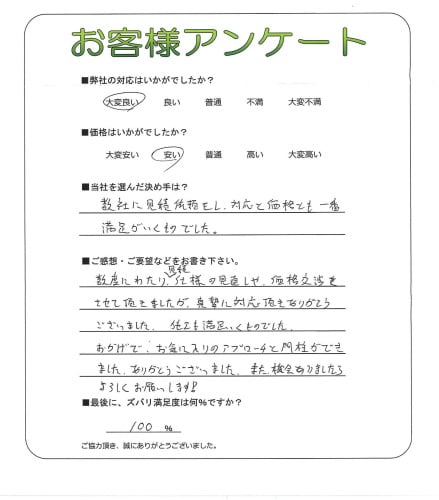 お客様アンケート
■弊社の対応はいかがでしたか？
大変良い 良い 普通 不満 大変不満
■価格はいかがでしたか？
大変安い 安い 普通 高い 大変高い
■当社を選んだ決め手は？
数社に見積依頼をし、対応と価格とも一番
満足がいくものでした。
■ご感想・ご要望などをお書き下さい。
数度にわたり、見積、仕様の見直しや、価格交渉を
させて頂きましたが、真摯に対応頂きありがとう
ございました。仕上も満足いくものでした。
おかげで、お気に入りのアプローチと門柱ができ
ました。ありがとうございました。また、機会ありましたら
よろしくお願いします!!
■最後に、ズバリ満足度は何％ですか？
100 ％
ご協力頂き、誠にありがとうございました。